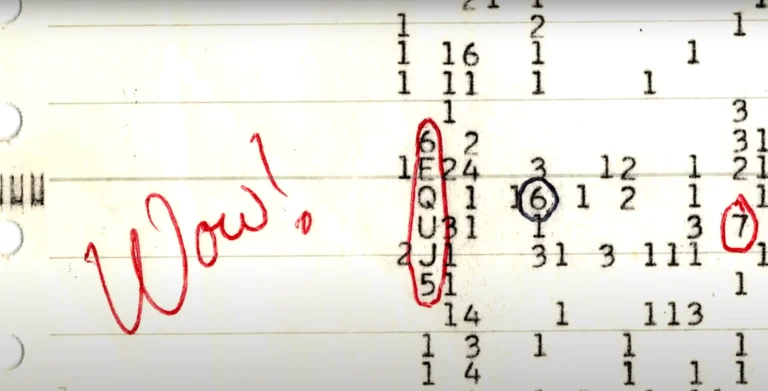 1 2 1
1 16 1 1
1 11 1 1
1 3
6 2 31
1E24 3 12 1 21
Q 1 16 1 2 1 1
U31 1 3 7
2J1 31 3 111 1
51 1
14 1 113
1 3 1 1 1
1 4 1 1 1
Wow!